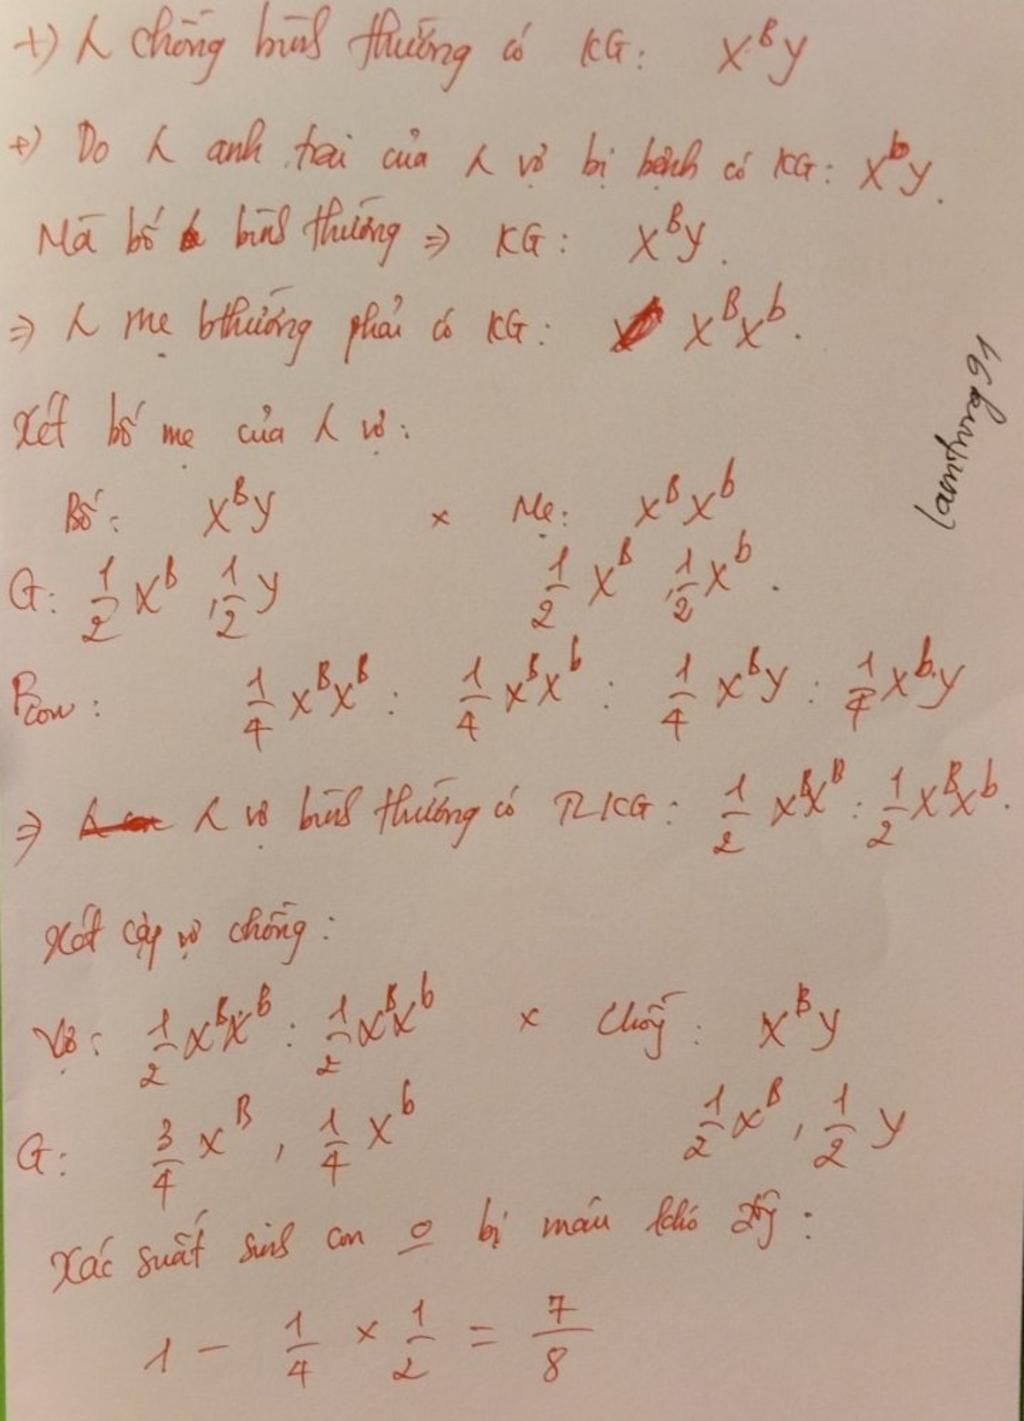 +) λ chồng bình thường có KG: X^B Y
+) Do λ anh trai của λ vợ bị bệnh có KG: X^b Y.
Mà bố bình thường ⇒ KG: X^B Y.
⇒ λ mẹ bthường phải có KG: X^B X^b.
Xét bố mẹ của λ vợ:
Bố: X^B Y × Mẹ: X^B X^b
G: 1/2 X^B, 1/2 Y 1/2 X^B, 1/2 X^b.
P con: 1/4 X^B X^B : 1/4 X^B X^b : 1/4 X^B Y : 1/4 X^b Y
⇒ λ vợ bình thường có TLKG: 1/2 X^B X^B : 1/2 X^B X^b.
Xét cặp vợ chồng:
Vợ: 1/2 X^B X^B : 1/2 X^B X^b × Chồng: X^B Y
G: 3/4 X^B, 1/4 X^b 1/2 X^B, 1/2 Y
Xác suất sinh con o bị máu khó đông:
1 - 1/4 × 1/2 = 7/8
lamtrong91